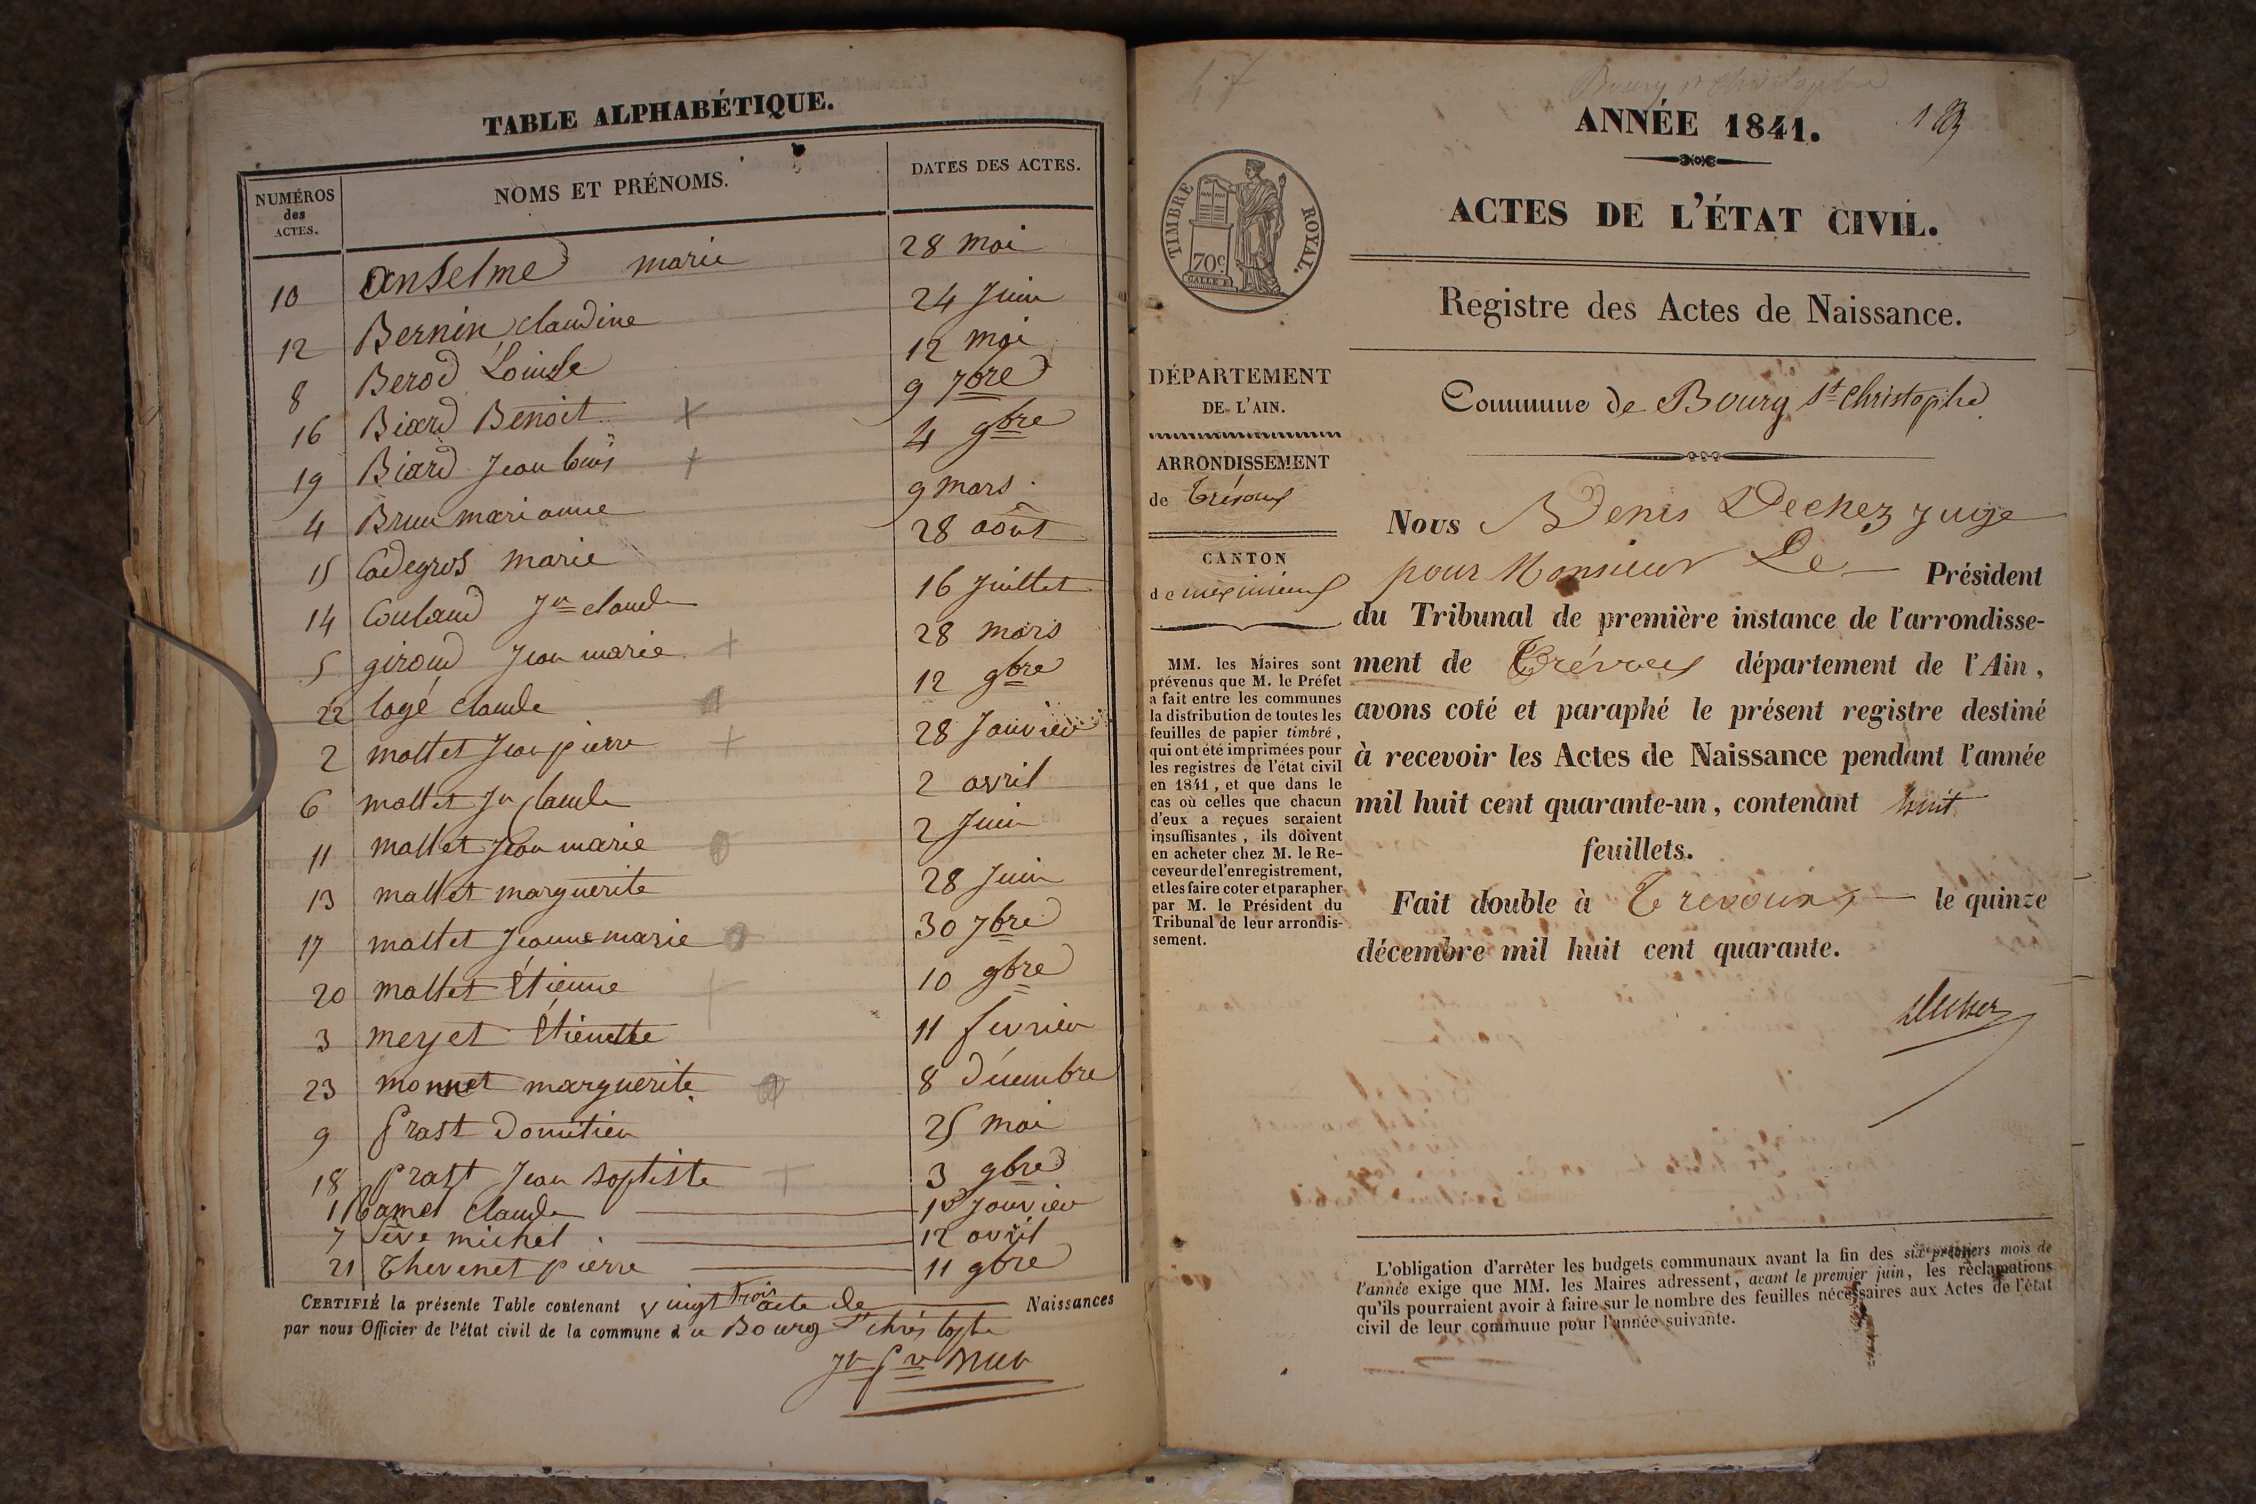 TABLE ALPHABÉTIQUE.
NUMÉROS des ACTES. NOMS ET PRÉNOMS. DATES DES ACTES.
10 Anselme marie 28 mai
12 Bernin claudine 24 Juin
8 Berod Louise 12 mai
16 Biard Benoit 9 7bre
19 Biard Jean louis 4 9bre
4 Brun marianne 9 mars
15 Cadegros marie 28 août
14 Couland Jn claude 16 Juillet
5 giroud Jean marie 28 mars
22 logé claude 12 9bre
2 mallet Jean pierre 28 Janvier
6 mallet Jn claude 2 avril
11 mallet Jean marie 2 Juin
13 mallet marguerite 28 Juin
17 mallet Jeanne marie 30 7bre
20 mallet Étienne 10 9bre
3 meyet Étiennette 11 fevrier
23 monnet marguerite 8 décembre
9 prast Domitien 25 mai
18 prast Jean Baptiste 3 9bre
1 Ramel claude 10 Janvier
7 Sève michel 12 avril
21 Thevenet pierre 11 9bre
CERTIFIÉ la présente Table contenant vingt trois acte de Naissances
par nous Officier de l'état civil de la commune de Bourg St christophe
47
Bourg St Christophe
ANNÉE 1841.
TIMBRE ROYAL.
70c.
ACTES DE L'ÉTAT CIVIL.
Registre des Actes de Naissance.
DÉPARTEMENT
DE L'AIN.
ARRONDISSEMENT
de Trévoux
CANTON
de meximieux
MM. les Maires sont
prévenus que M. le Préfet
a fait entre les communes
la distribution de toutes les
feuilles de papier timbré,
qui ont été imprimées pour
les registres de l'état civil
en 1841, et que dans le
cas où celles que chacun
d'eux a reçues seraient
insuffisantes, ils doivent
en acheter chez M. le Re-
ceveur de l'enregistrement,
et les faire coter et parapher
par M. le Président du
Tribunal de leur arrondis-
sement.
Commune de Bourg St Christophe
Nous Denis Dechez juge
pour Monsieur Le Président
du Tribunal de première instance de l'arrondisse-
ment de Trévoux département de l'Ain,
avons coté et paraphé le présent registre destiné
à recevoir les Actes de Naissance pendant l'année
mil huit cent quarante-un, contenant huit
feuillets.
Fait double à Trevoux le quinze
décembre mil huit cent quarante.
L'obligation d'arrêter les budgets communaux avant la fin des six premiers mois de
l'année exige que MM. les Maires adressent, avant le premier juin, les réclamations
qu'ils pourraient avoir à faire sur le nombre des feuilles nécessaires aux Actes de l'état
civil de leur commune pour l'année suivante.